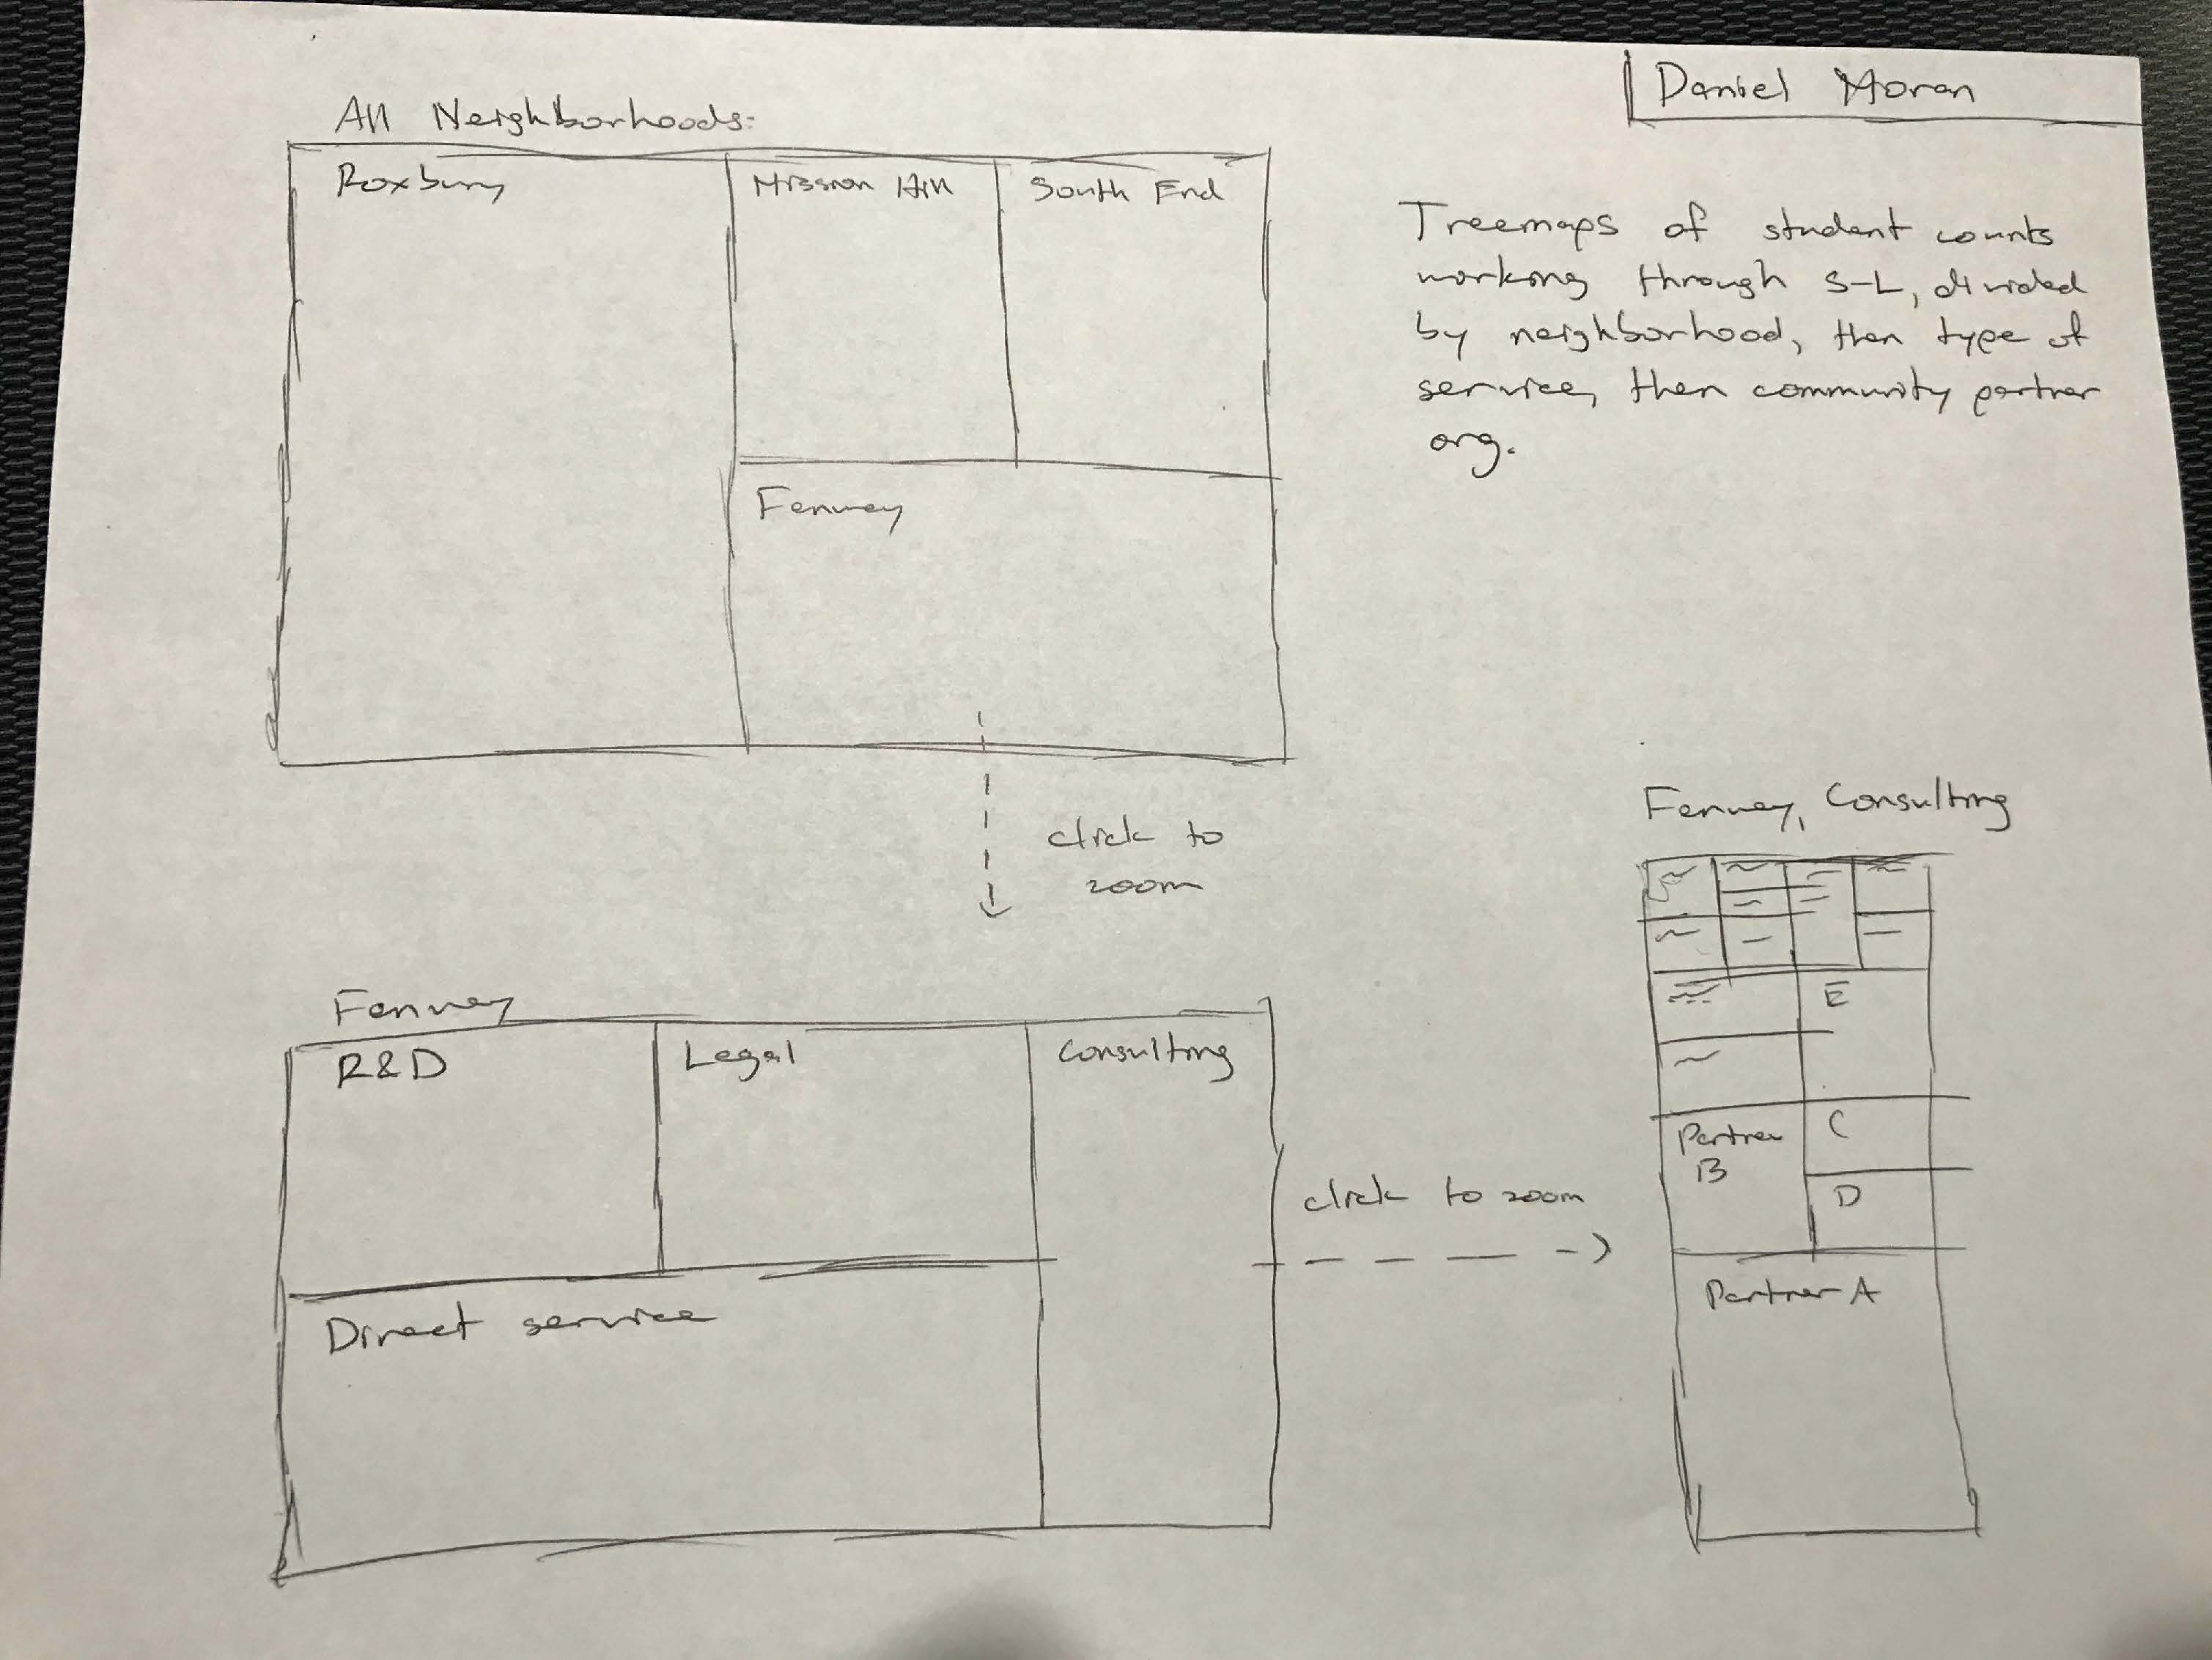 Daniel Moran
All Neighborhoods:
Roxbury
Mission Hill
South End
Fenway
Treemaps of student counts
working through S-L, divided
by neighborhood, then type of
service, then community partner
org.
click to
zoom
Fenway
R&D
Legal
Consulting
Direct service
click to zoom
Fenway, Consulting
E
Partner
B
C
D
Partner A